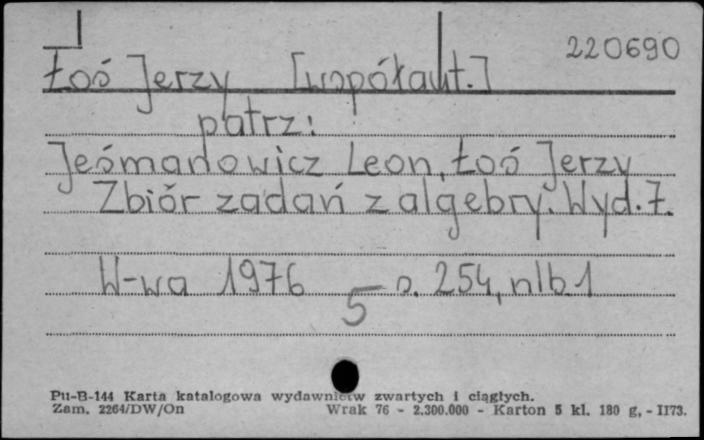 220690
Łoś Jerzy [współaut.]
patrz:
Jeśmanowicz Leon, Łoś Jerzy
Zbiór zadań z algebry. Wyd. 7.
W-wa 1976 s. 254, nlb 1
5
Pu-B-144 Karta katalogowa wydawnictw zwartych i ciągłych.
Zam. 2264/DW/On Wrak 76 - 2.300.000 - Karton 5 kl. 180 g. - II73.